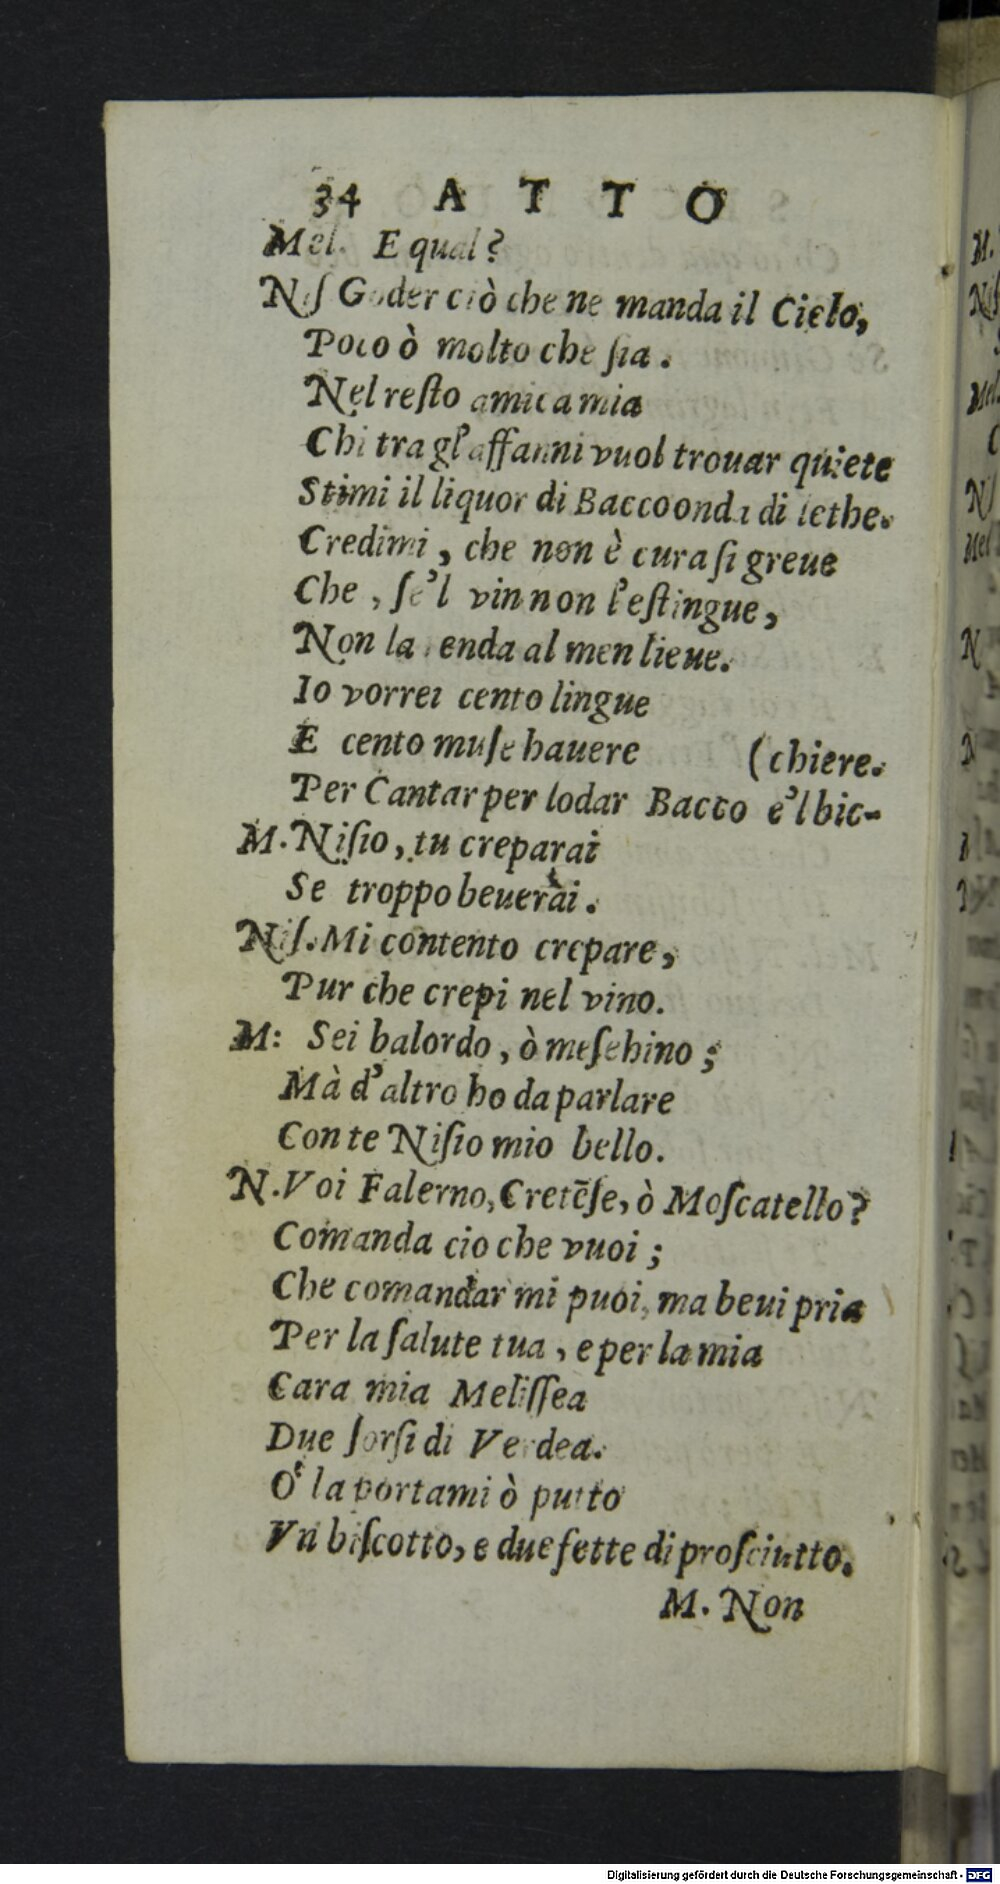 34 ATTO
Mel. E qual?
Niſ Goder ciò che ne manda il Cielo,
Poco ò molto che ſia.
Nel reſto amica mia
Chi tra gl'affanni vuol trouar quiete
Stimi il liquor di Bacco onda di lethe.
Credimi, che non è cura ſi greue
Che, ſe'l vin non l'eſtingue,
Non la enda al men lieue.
Io vorrei cento lingue
E cento muſe hauere (chiere.
Per Cantar per lodar Bacco e'l bic-
M. Niſio, tu creparai
Se troppo beuerai.
Niſ. Mi contento crepare,
Pur che crepi nel vino.
M: Sei balordo, ò meſehino;
Mà d'altro ho da parlare
Con te Niſio mio bello.
N. Voi Falerno, Cretēſe, ò Moſcatello?
Comanda cio che vuoi;
Che comandar mi puoi, ma beui pria
Per la ſalute tua, e per la mia
Cara mia Meliſſea
Due ſorſi di Verdea.
O' la portami ò putto
Vn biſcotto, e due fette di proſciutto.
M. Non
Digitalisierung gefördert durch die Deutsche Forschungsgemeinschaft - DFG